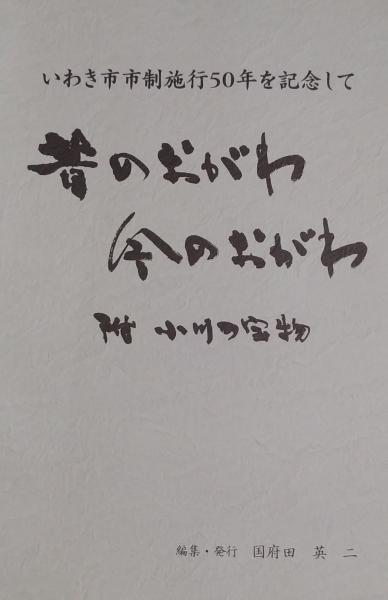 いわき市市制施行50年を記念して
昔のおがわ
今のおがわ
附 小川の宝物
編集・発行 国府田 英 二